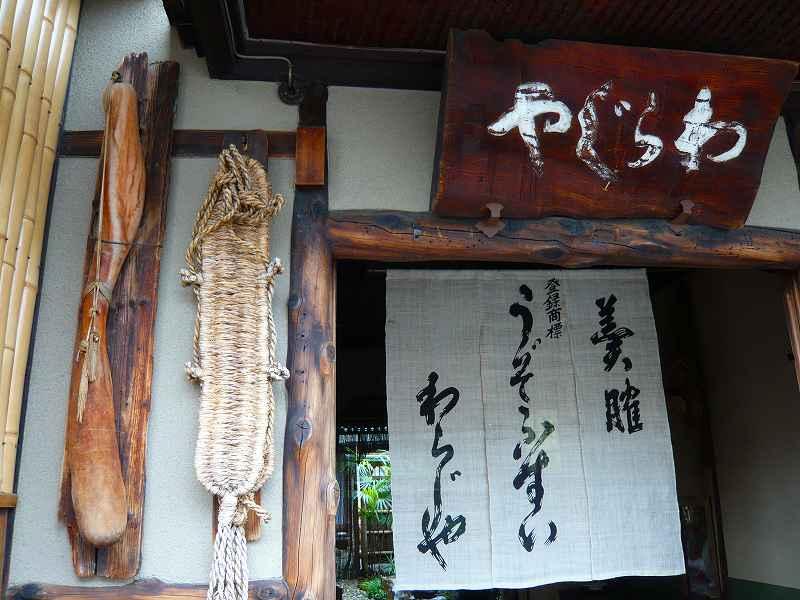 わらじや
羹臛
登録商標
うぞふすい
わらじや